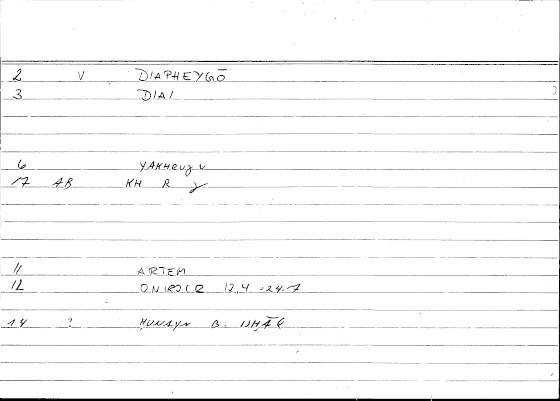 2 V DIAPHEYGŌ
3 DIAI
6 YAKHRUJU
17 AB KH R J
11 ARTEM
12 ONIROCR 12,4 -24.7
14 ? ḤUNAYN B. ISḤĀQ